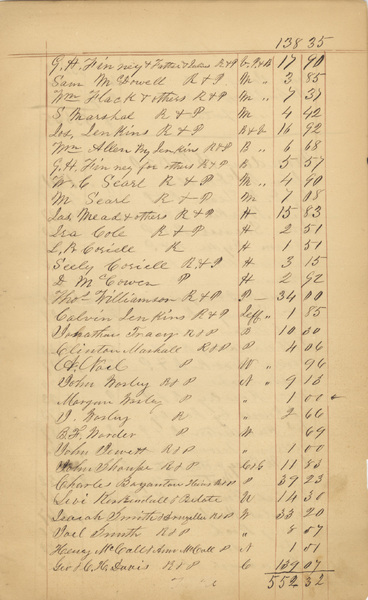 138 35
G. H. Finney & R & P 17 90
Sam McDowell R & P M " 3 85
Wm Flack & others R & P M " 7 37
S Marshal R & P M 4 42
Jos, Jenkins R & P 16 92
Wm Allen by Jenkins R & P B " 6 68
G. H. Finney for others R & P B 5 57
W. C Searl R & P M " 4 90
M Searl R & P M 7 08
Jas Mead & others R & P H 15 83
Ira Cole R & P H 2 51
L, B Coriell R H 1 51
Seely Coriell R & P H 3 15
D McCowen P H 2 92
Thos Williamson R & P P 34 00
Calvin Jenkins R & P Jeff " 1 85
Jonathan Tracy R & P B 10 30
Clinton Marshall R & P P 4 06
Noel P W " 96
John Worley R & P N " 9 13
Morgan Worley P " 1 00
J. Worley R " 2 66
B. F. Worder P W 69
John Jewett R & P " 1 00
John R & P C & G 11 83
Charles R & P P 39 23
Levi Estate N 14 30
Isaiah Smith & R & P W 33 20
Joel Smith R & P " 8 57
Henry McCall & McCall P N 1 01
Geo & C H Davis R & P C 139 07
552 32